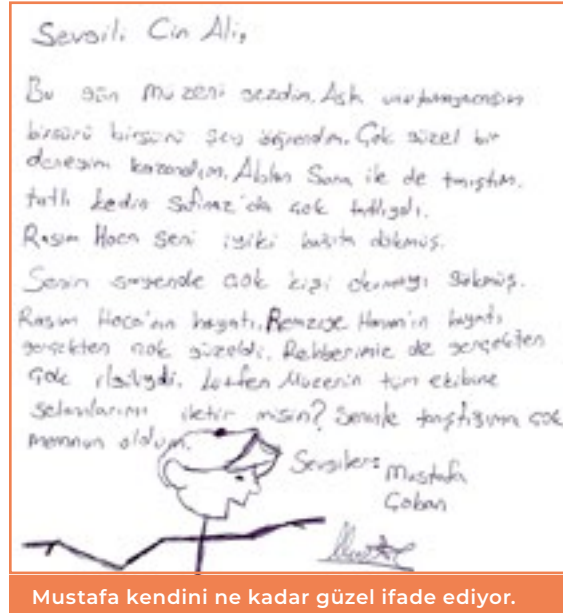 Sevgili Cin Ali,
Bu gün müzeni gezdim. Asla unutamayacağım
birsürü birsürü şey öğrendim. Çok güzel bir
deneyim kazandım. Ablan Suna ile de tanıştım.
tatlı kedin Safinaz'da çok tatlıydı.
Rasim Hoca seni iyiki kağıta dökmüş.
Senin sayende çok kişi okumayı sökmüş.
Rasim Hoca'nın hayatı, Remziye Hanım'ın hayatı
gerçekten çok güzeldi. Rehberimiz de gerçekten
çok ilgiliydi. Lütfen Müzenin tüm ekibine
selamlarımı iletir misin? Seninle tanıştığıma çok
memnun oldum.
Sevgiler:
Mustafa
Çoban
Mustafa kendini ne kadar güzel ifade ediyor.